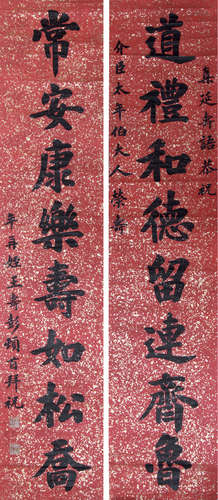 集延壽語恭祝
介臣太年伯大人榮壽
道禮和德留連齊魯
常安康樂壽如松喬
年再姪王壽彭頓首拜祝